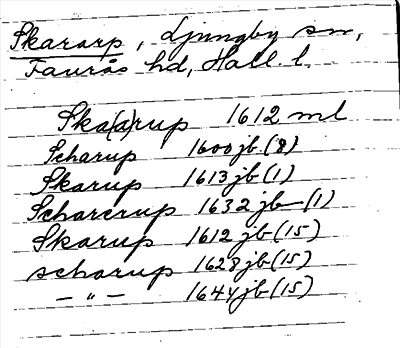 Skararp, Ljungby sn,
Faurås hd, Hall. l.
Ska(a)rup 1612 ml
Scharup 1600 jb (8)
Skarup 1613 jb (1)
Scharerup 1632 jb (1)
Skarup 1612 jb (15)
scharup 1628 jb (15)
— " — 1644 jb (15)